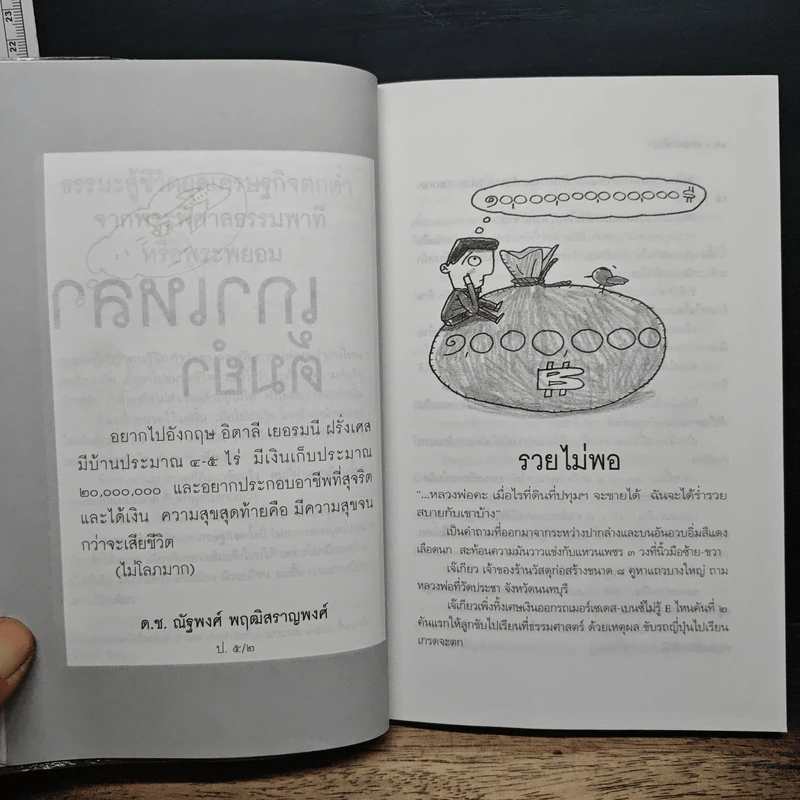 23
22
อยากไปอังกฤษ อิตาลี เยอรมนี ฝรั่งเศส
มีบ้านประมาณ ๔-๕ ไร่ มีเงินเก็บประมาณ
๒๐,๐๐๐,๐๐๐ และอยากประกอบอาชีพที่สุจริต
และได้เงิน ความสุขสุดท้ายคือ มีความสุขจน
กว่าจะเสียชีวิต
(ไม่โลภมาก)
ด.ช. ณัฐพงศ์ พฤฒิสราญพงศ์
ป. ๕/๒
๑๐,๐๐๐,๐๐๐,๐๐๐,๐๐๐ ฿
๑,๐๐๐,๐๐๐
฿
รวยไม่พอ
"...หลวงพ่อคะ เมื่อไรที่ดินที่ปทุมฯ จะขายได้ ฉันจะได้ร่ำรวย
สบายกับเขาบ้าง"
เป็นคำถามที่ออกมาจากระหว่างปากล่างและบนอันอวบอิ่มสีแดง
เลือดนก สะท้อนความมันวาวแข่งกับแหวนเพชร ๓ วงที่นิ้วมือซ้าย-ขวา
เจ๊เกียว เจ้าของร้านวัสดุก่อสร้างขนาด ๘ คูหาแถวบางใหญ่ ถาม
หลวงพ่อที่วัดประชา จังหวัดนนทบุรี
เจ๊เกียวเพิ่งทิ้งเศษเงินออกรถเมอร์เซเดส-เบนซ์ไม่รู้ E ไหนคันที่ ๒
คันแรกให้ลูกขับไปเรียนที่ธรรมศาสตร์ ด้วยเหตุผล ขับรถญี่ปุ่นไปเรียน
เกรดจะตก